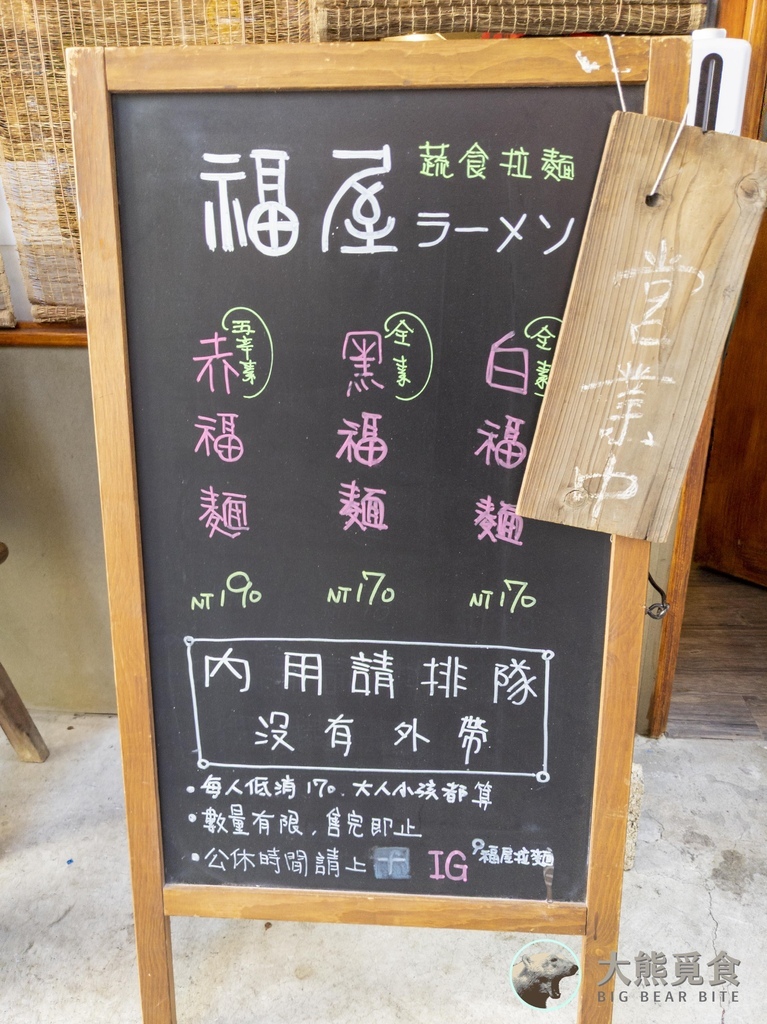 福屋 蔬食拉麵
ラーメン
營業中
赤福麵 五辛素
黑福麵 全素
白福麵 全素
NT190 NT170 NT170
內用請排隊
沒有外帶
•每人低消170.大人小孩都算
•數量有限,售完即止
•公休時間請上 IG 福屋拉麵
大熊覓食
BIG BEAR BITE